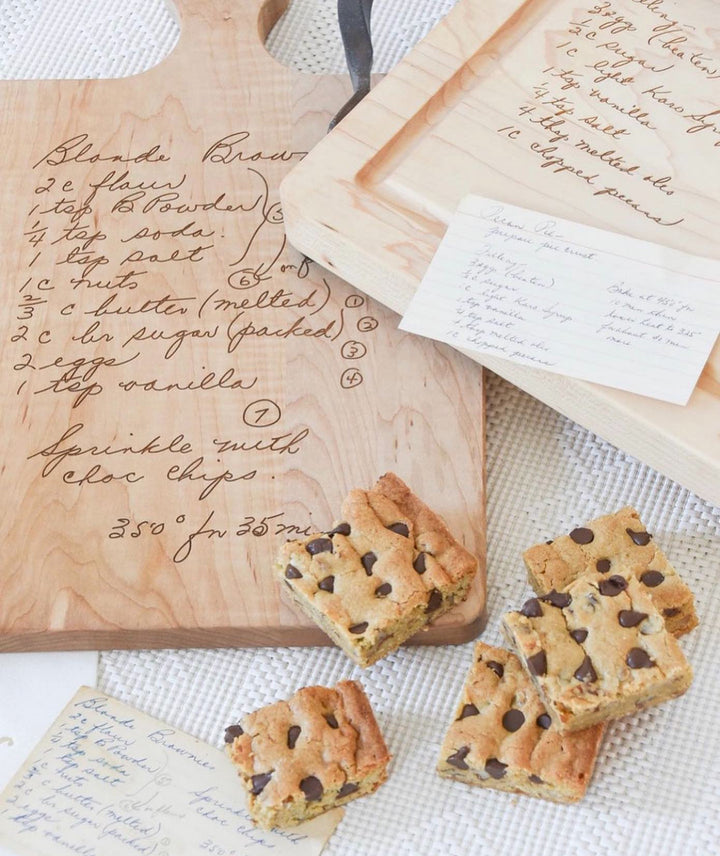 Blonde Brow
2 c flour
1 tsp B Powder
1/4 tsp soda.
1 tsp salt
⑤
1 c nuts
⑥
2/3 c butter (melted) ①
2 c br sugar (packed) ②
2 eggs ③
1 tsp vanilla ④
⑦
Sprinkle with
choc chips.
350° for 35 mi
3 eggs (beaten)
2 c sugar
1 c light Karo Sy
1 tsp vanilla
1/4 tsp salt
4 tbsp melted oleo
1 c chopped pecans
Pecan Pie
Prepare pie crust
Filling
3 eggs (beaten)
sugar
c light Karo Syrup
1 tsp vanilla
1/4 tsp salt
4 tbsp melted oleo
1 c chopped pecans
Bake at 450° for
10 min then
lower heat to 325°
min
more
Blonde Brownies
2 c flour
1 tsp B Powder
1/4 tsp soda
1 tsp salt
1 c nuts
2/3 c butter (melted)
2 c br sugar (packed)
2 eggs
1 tsp vanilla
Sprinkle with
choc chips
350°